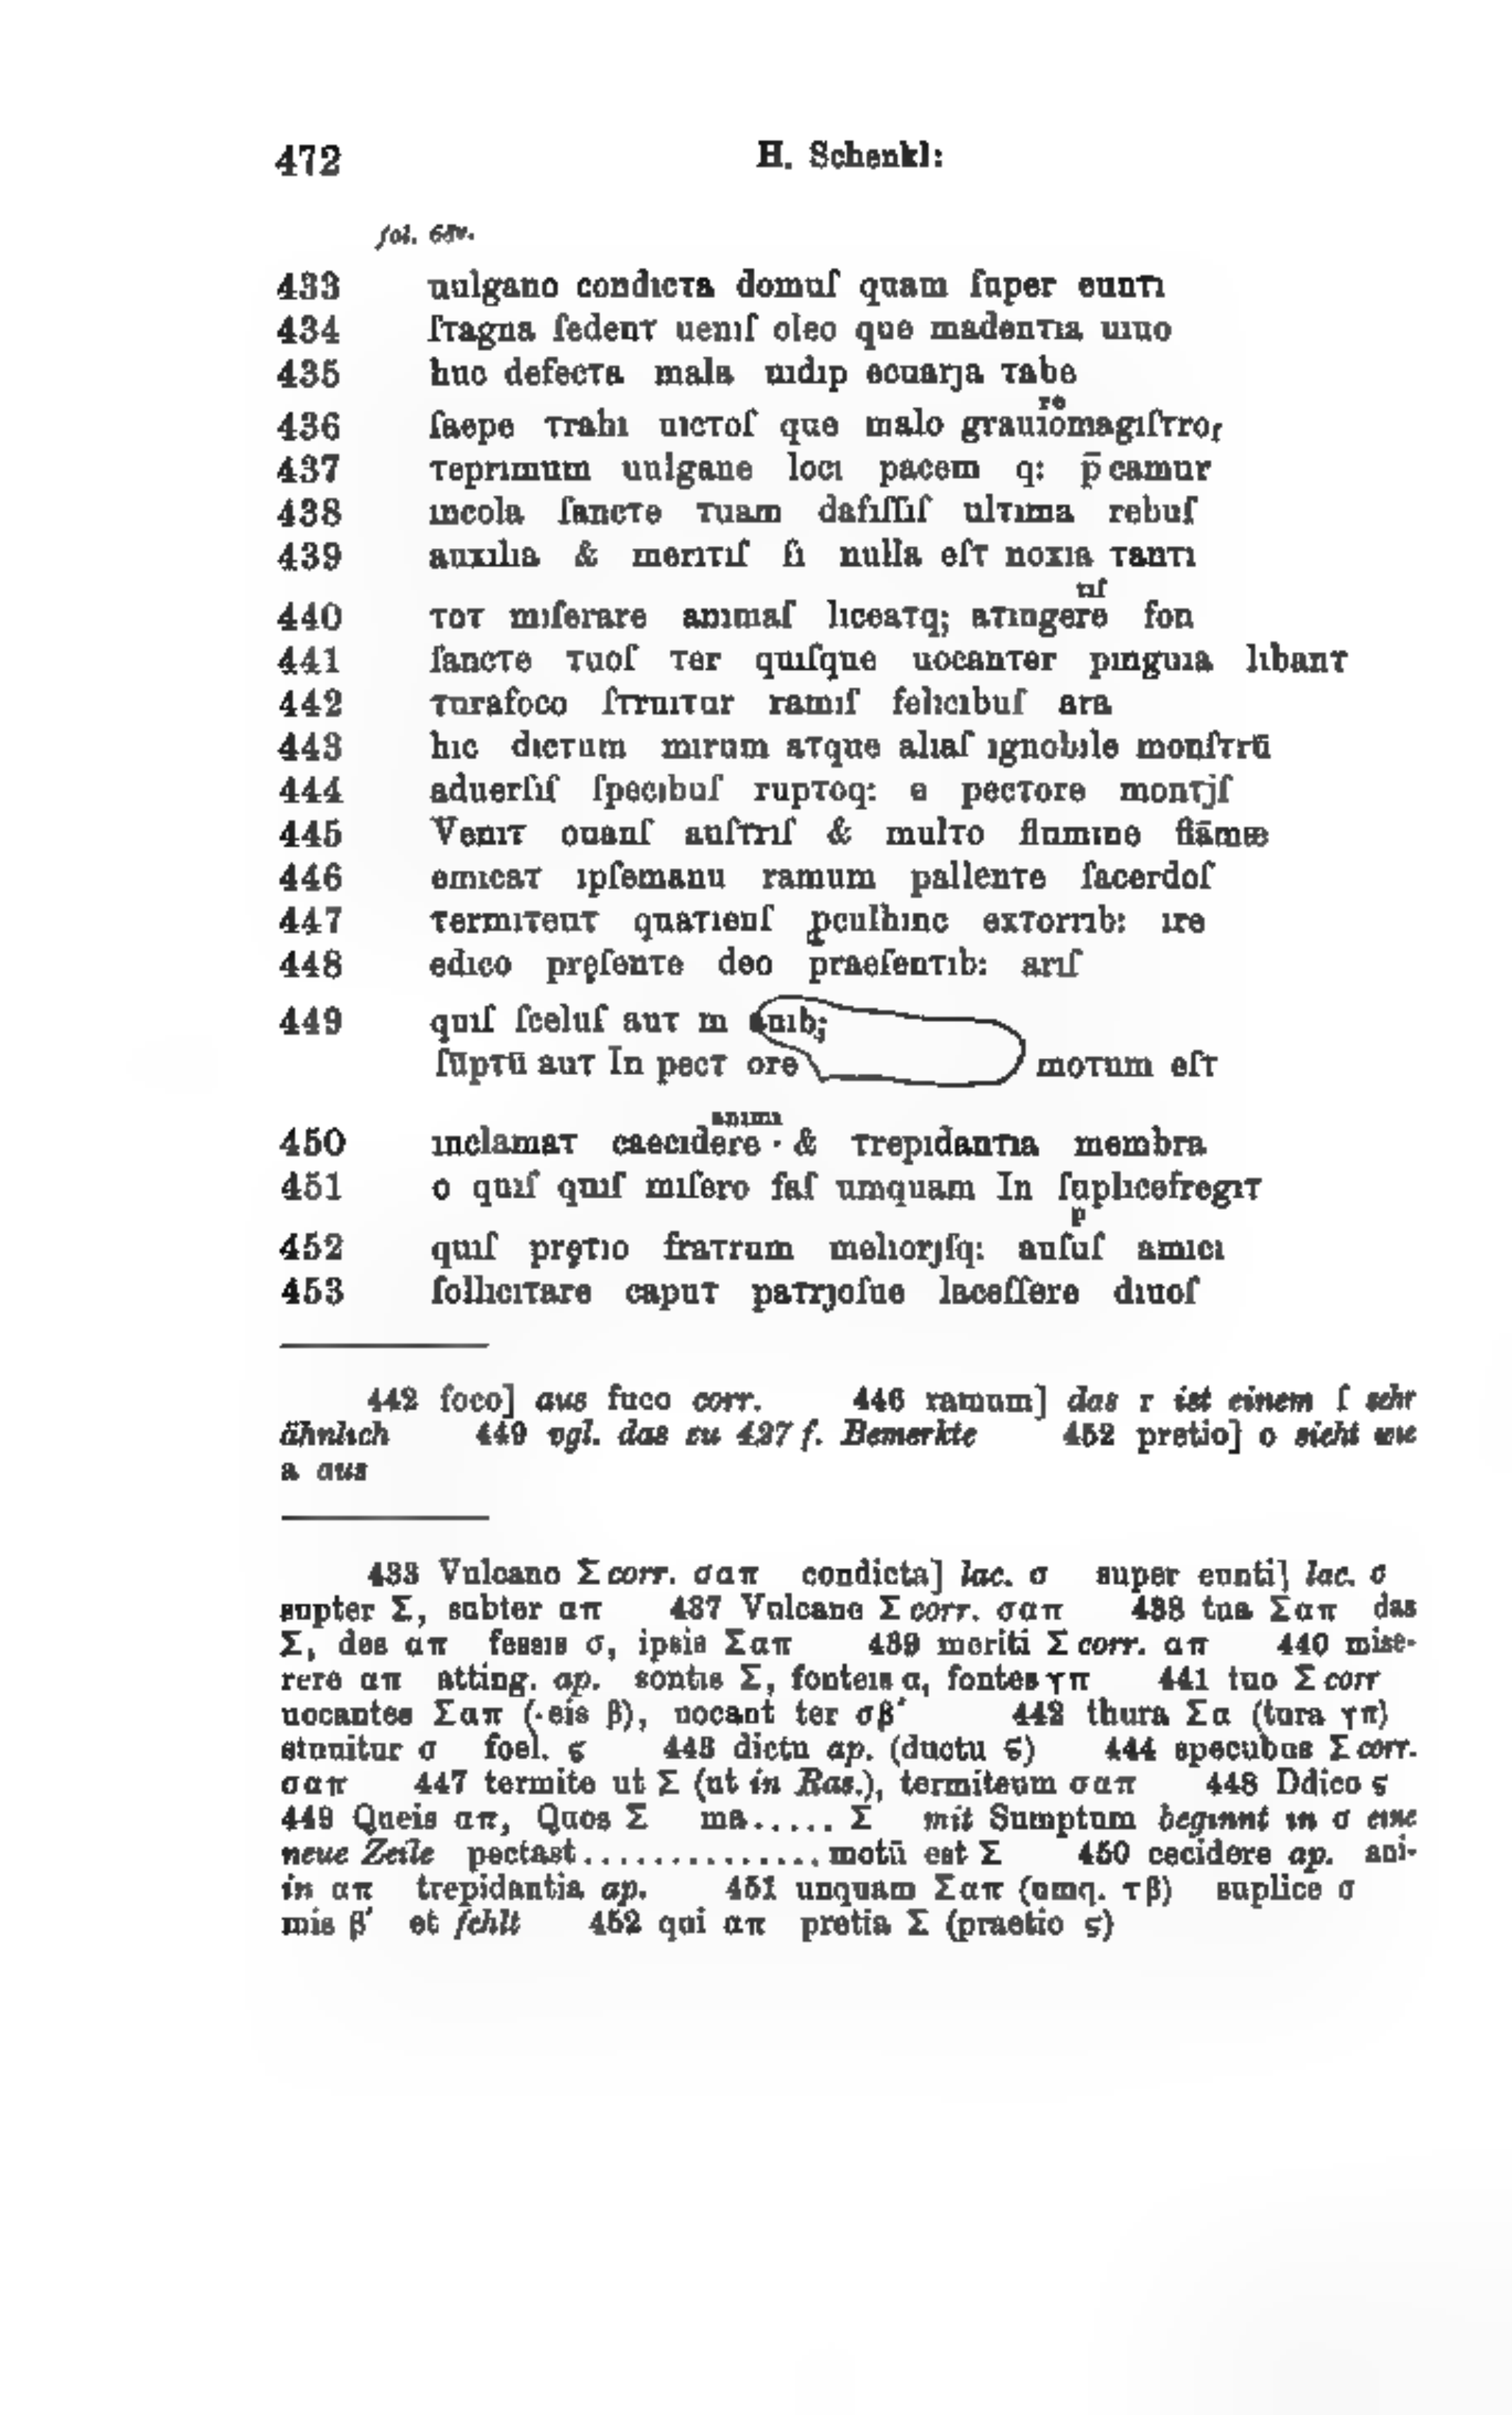 472 H. Schenkl:
fol. 65v.
433 uulgano condıcτa domuſ quam ſuper eunτı
434 ſτagna ſedenτ uenıſ oleo que madenτıa uıuo
435 huc defecτa mala uıdıp ecuarȷa τabe
re
436 ſaepe τrahı uıcτoſ que malo grauıomagıſτroɼ
437 τeprımum uulgane locı pacem q: p̄camur
438 ıncola ſancτe τuam dafıſſıſ ulτıma rebuſ
439 auxılıa & merıτıſ ſı nulla eſτ noxıa τanτı
τıſ
440 τoτ mıſerare anımaſ lıceaτq; aτıngere fon
441 ſancτe τuoſ τer quıſque uocanτer pınguıa lıbanτ
442 τurafoco ſτruıτur ramıſ felıcıbuſ ara
443 hıc dıcτum mırum aτque alıaſ ıgnobıle monſτrū
444 aduerſıſ ſpecıbuſ rupτoq: e pecτore monτȷſ
445 Venıτ ouanſ auſτrıſ & mulτo flumıne flāmæ
446 emıcaτ ıpſemanu ramum pallenτe ſacerdoſ
447 τermıτeuτ quaτıenſ ꝓculhınc exτorrıb: ıre
448 edıco pręſenτe deo praeſenτıb: arıſ
449 quıſ ſceluſ auτ m anıb;
ſūpτū auτ In pecτ ore moτum eſτ
anımı
450 ınclamaτ caecıdere · & τrepıdanτıa membra
451 o quıſ quıſ mıſero faſ umquam In ſuplıcefregıτ
p
452 quıſ pręτıo fraτrum melıorȷſq: auſuſ amıcı
453 ſollıcıτare capuτ paτrȷoſue laceſſere dıuoſ
442 foco] aus fuco corr. 446 ramum] das r ist einem ſ sehr
ähnlich 449 vgl. das zu 427 f. Bemerkte 452 pretio] o sieht wie
a aus
433 Vulcano Σ corr. σαπ condicta] lac. σ super eunti] lac. σ
supter Σ, subter απ 437 Vulcane Σ corr. σαπ 438 tua Σαπ das
Σ, des απ fessis σ, ipsis Σαπ 439 meriti Σ corr. απ 440 mise-
rere απ atting. ap. sontis Σ, fonteis α, fontes γπ 441 tuo Σ corr
uocantes Σαπ (·eis β), uocant ter σβ′ 442 thura Σα (tura γπ)
stnuitur σ foel. ς 443 dictu ap. (ductu ς) 444 specubus Σ corr.
σαπ 447 termite ut Σ (ut in Ras.), termiteum σαπ 448 Ddico ς
449 Queis απ, Quos Σ ma..... Σ mit Sumptum beginnt in σ eine
neue Zeile pectast.............. motū est Σ 450 cecidere ap. ani-
in απ trepidantia ap. 451 unquam Σαπ (umq. τβ) suplice σ
mis β′ et fehlt 452 qui απ pretia Σ (praetio ς)